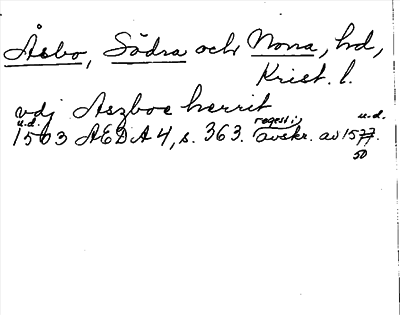 Åsbo, Södra och Norra, hd,
Krist. l.
vdj Aszboe herrit
u.d. regest i u.d.
1503 AEDA 4, s. 363. avskr. av 1577.
50